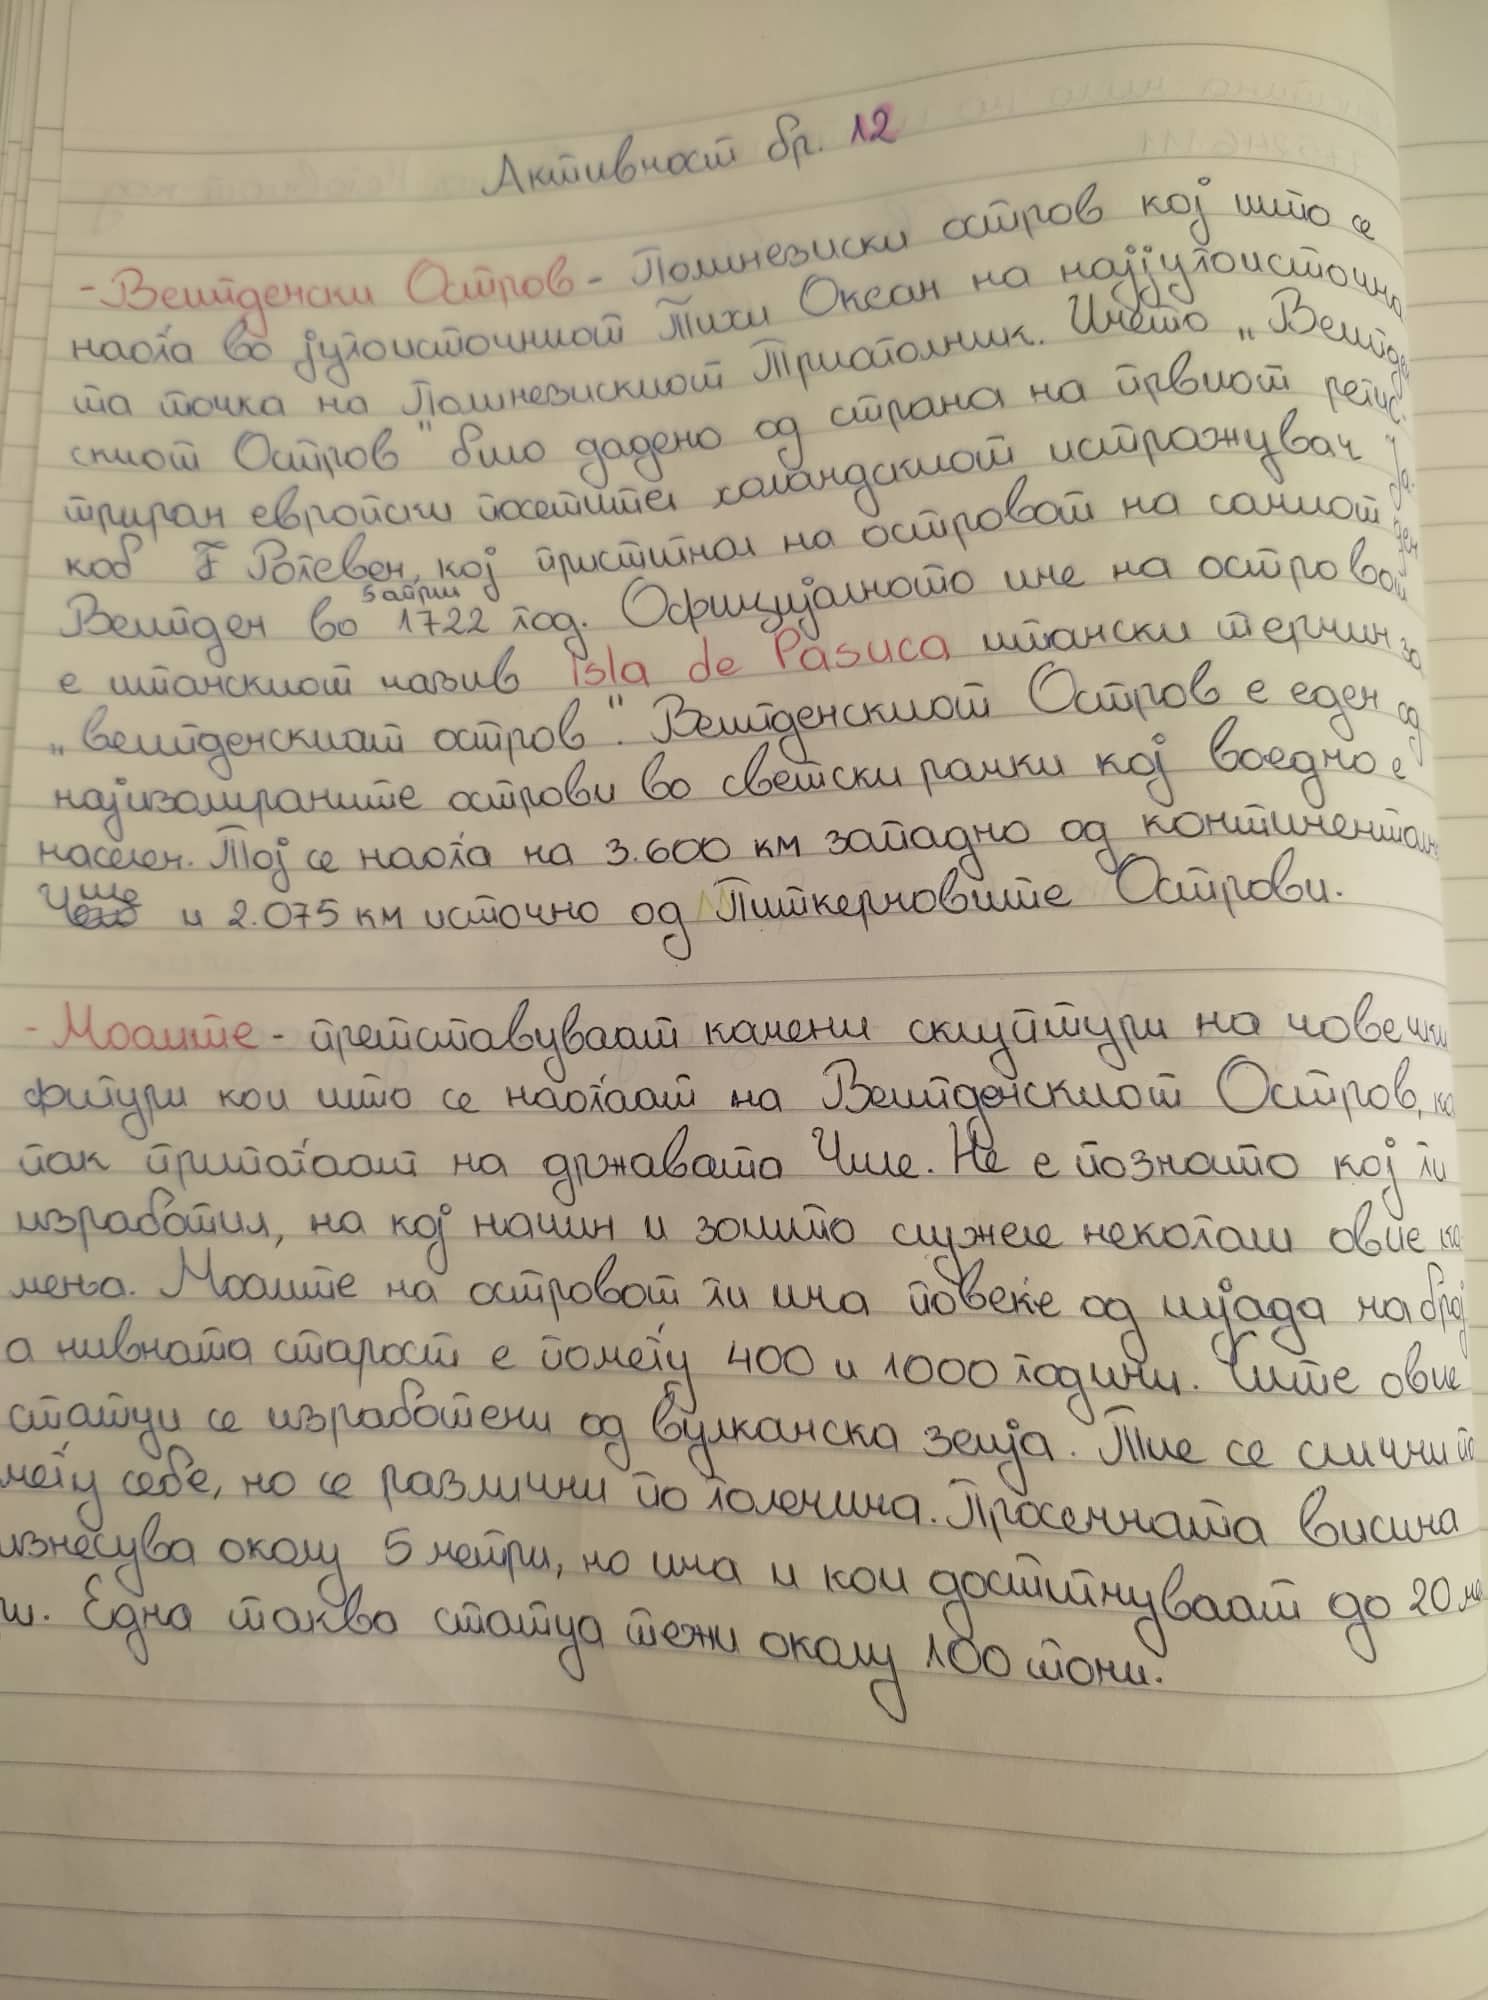 Активност бр. 12
- Велигденски Остров - Полинезиски остров кој што се
наоѓа во југоисточниот Тихи Океан на најјугоисточна
та точка на Полинезискиот Триаголник. Името „Велигден
скиот Остров" било дадено од страна на првиот регис-
триран европски посетител холандскиот истражувач Ја-
коб Рогевен, кој пристигнал на островот на самиот ден
Велигден во 5 април 1722 год. Официјалното име на островот
е шпанскиот назив Isla de Pasuca шпански термин за
„велигденскиот остров". Велигденскиот Остров е еден од
најизолираните острови во светски рамки кој воедно е
населен. Тој се наоѓа на 3.600 км западно од континентално
Чиле и 2.075 км источно од Питкерновите Острови.
- Моаите - претставуваат камени скулптури на човечки
фигури кои што се наоѓаат на Велигденскиот Остров, ка
пак припаѓаат на државата Чиле. Не е познато кој ги
изработил, на кој начин и зошто служеле некогаш овие ка
мења. Моаите на островот ги има повеќе од илјада на број
а нивната старост е помеѓу 400 и 1000 години. Сите овие
статуи се изработени од вулканска земја. Тие се слични по
меѓу себе, но се различни по големина. Просечната висина
изнесува околу 5 метри, но има и кои достигнуваат до 20 ме
ри. Една таква статуа тежи околу 100 тони.